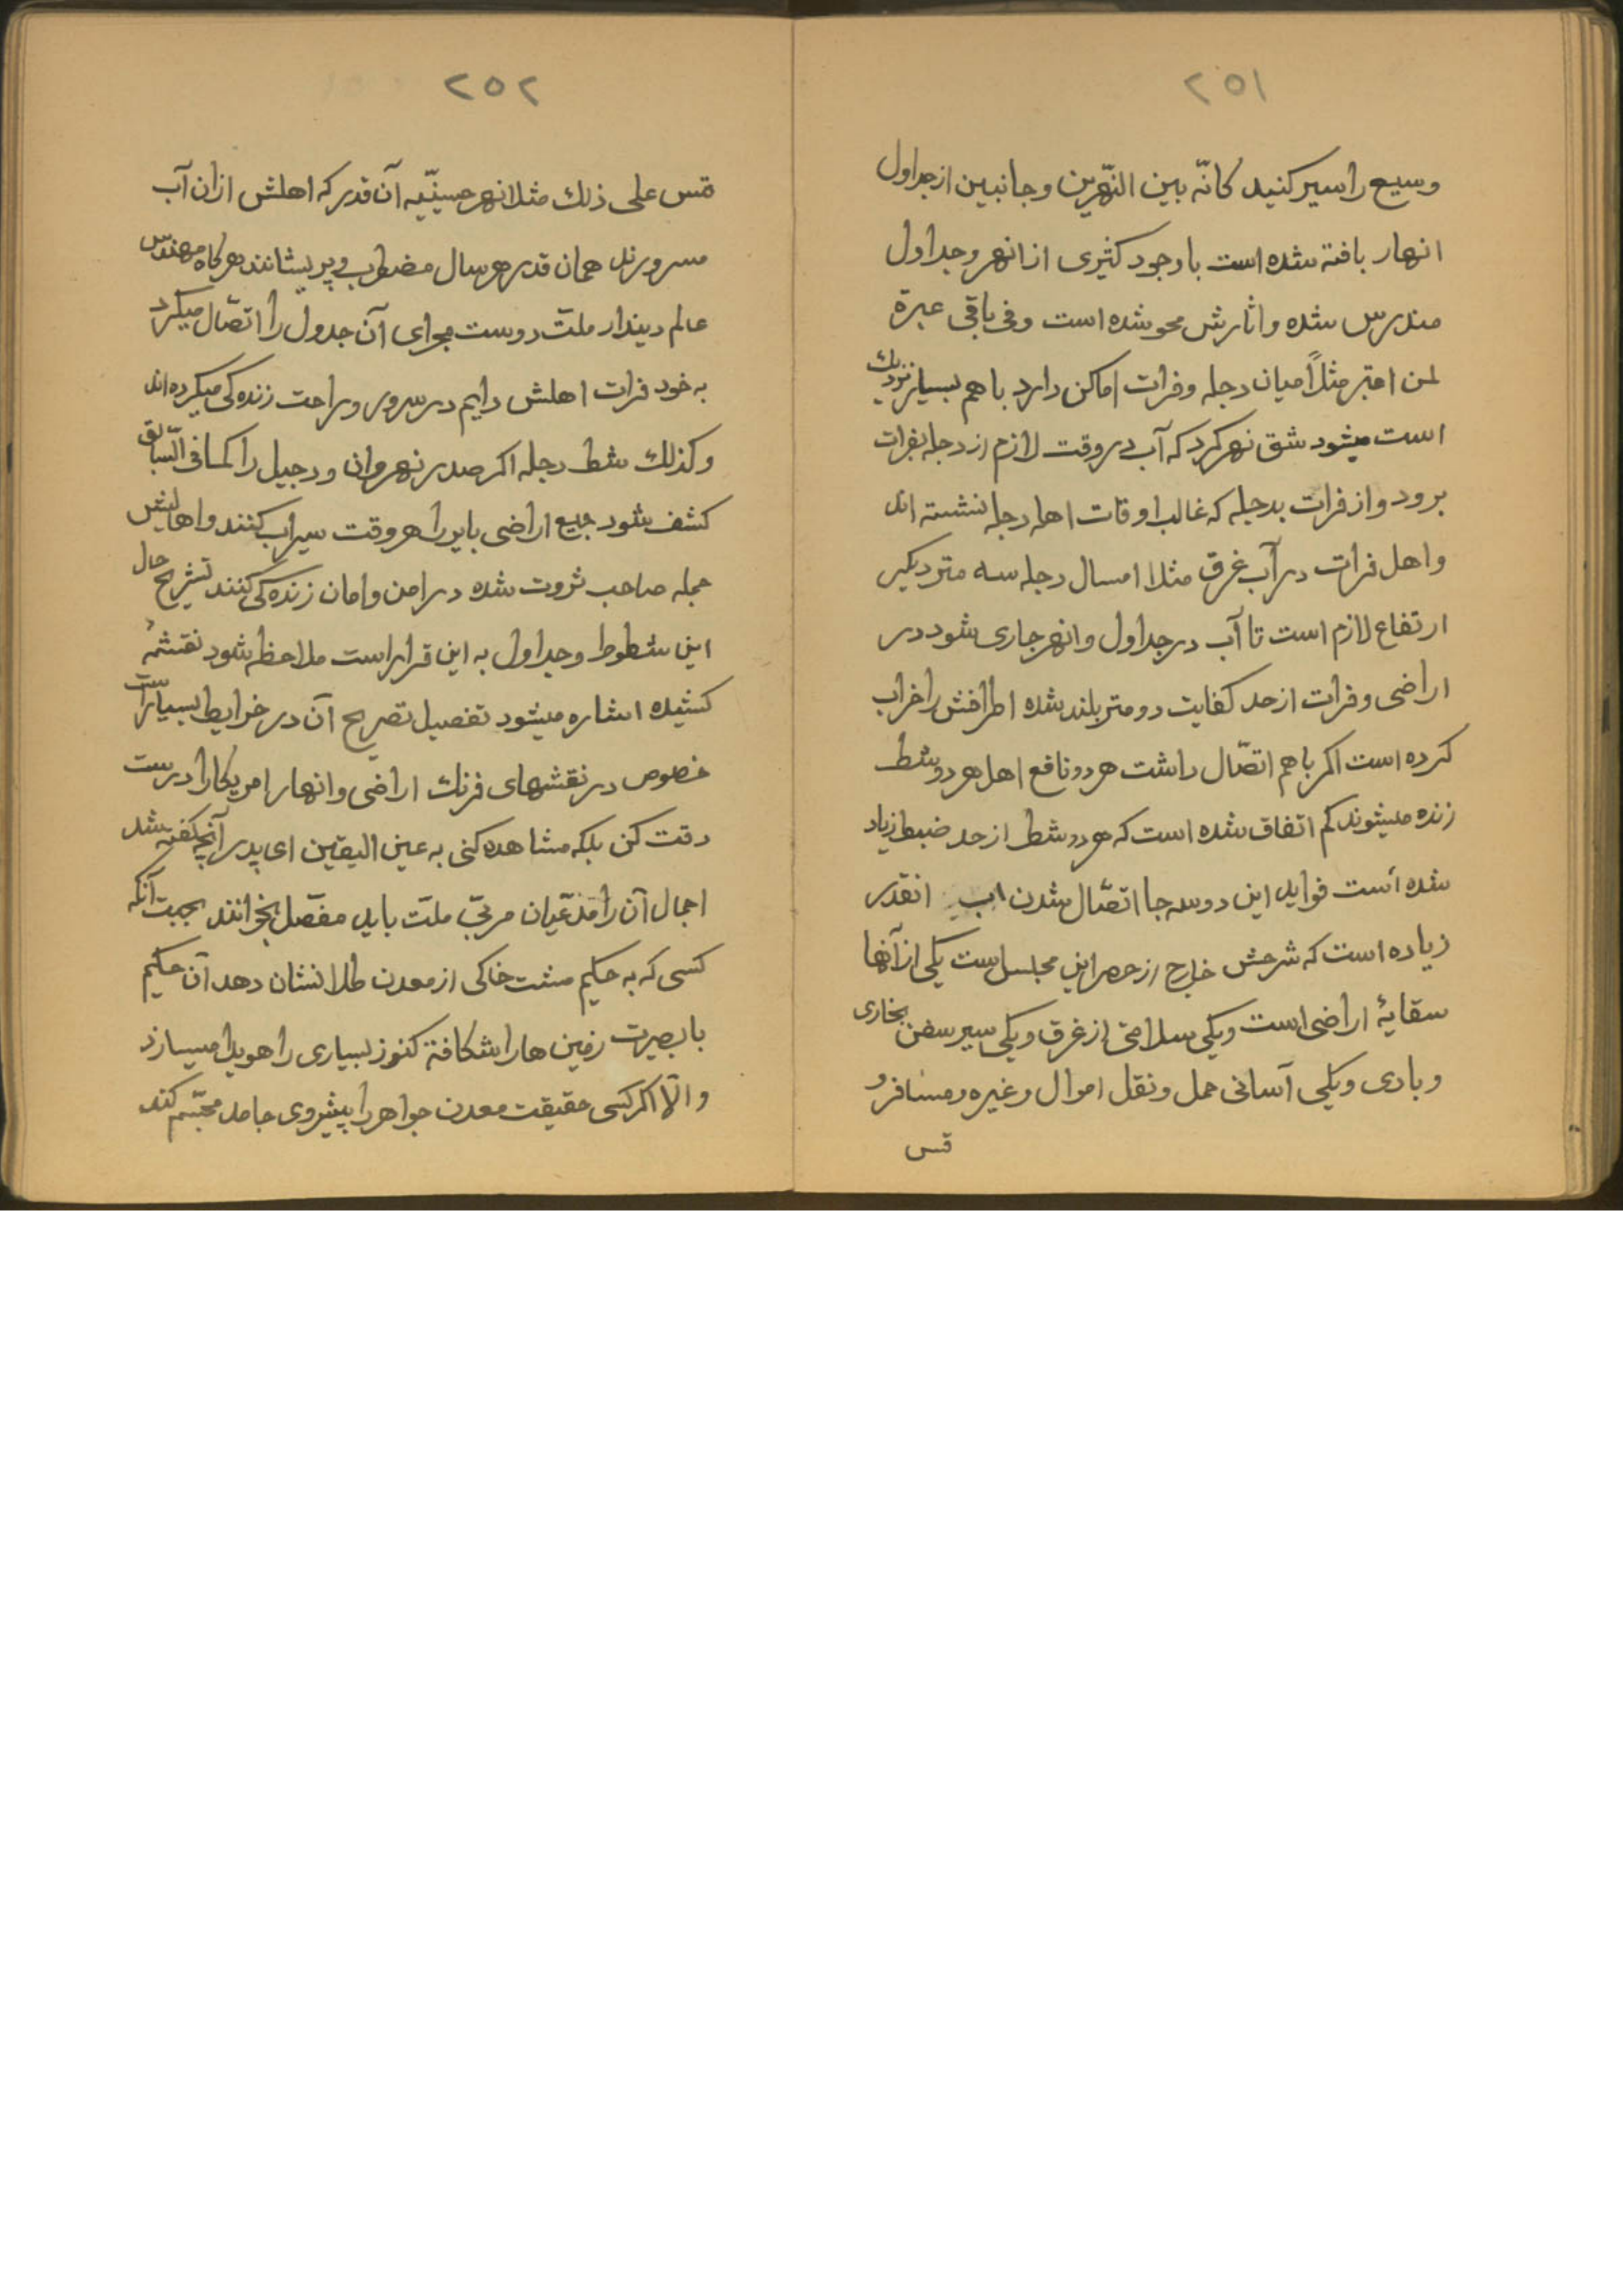 ٢٥١
وسیع را سیر کنید کانّه بین النّهرین و جانبین از جداول
انهار بافته شده است با وجود کثیری از انهر و جداول
مندرس شده و اثارش محو شده است و فی باقی عبرة
لمن اعتبر مثلاً میان دجله و فرات اماکن دارد با هم بسیار نزدیک
است میشود شق نهر کرد که آب در وقت لازم از دجله بفرات
برود و از فرات بدجله که غالب اوقات اهل دجله نشسته اند
و اهل فرات در آب غرق مثلا امسال دجله سه متر دیگر
ارتفاع لازم است تا آب در جداول و انهر جاری شود در
اراضی و فرات از حد کفایت دو متر بلند شده اطرافش را خراب
کرده است اکر باهم اتصّال داشت هر دو نافع اهل هر دو شط
زنده میشوند کم اتفاق شده است که هر دو شط از حد ضبط زیاد
شده است فواید این دو سه جا اتصّال شدن اب انقدر
زیاده است که شرحش خارج از حصر این مجلس است یکی از آنها
سقایهٔ اراضی است و یکی سلامتی از غرق و یکی سیر سفن بخاری
و بادی و یکی آسانی حمل و نقل اموال و غیره و مسافر و
قس
٢٥٢
قس علی ذلك مثلا نهر حسینیّه آن قدر که اهلش از ان آب
مسرورند همان قدر هر سال مضطرب و پریشانند هر کاه مهندس
عالم دیندار ملتّ دوست مجرای آن جدول را اتصّال میکرد
به خود فرات اهلش دایم در سرور و راحت زنده کی میکرده اند
و کذلك شط دجله اکر صدر نهروان و دجیل را کما فی السّابق
کشف شود جمیع اراضی بایر را هر وقت سیراب کنند و اهالیش
جمله صاحب ثروت شده در امن و امان زنده کی کنند تشریح حال
این شطوط و جداول به این قرار است ملاحظه شود نقشهٔ
کشیده اشاره میشود تفصیل تصریح آن در خرایط بسیار است
خصوص در نقشهای فرنك اراضی و انهار امریکا را درست
دقت کن بلکه مشاهده کنی به عین الیقین ای پدر آنچه کفته شد
اجمال آن را مدّعیان مربّی ملتّ باید مفصّل بخوانند بجهت آنکه
کسی که به حکیم مشت خاکی از معدن طلا نشان دهد آن حکیم
با بصیرت زمین ها را شکافته کنوز بسیاری را هویدا میسازد
و الّا اکر کسی حقیقت معدن جواهر را پیشروی جامد مجسّم کند